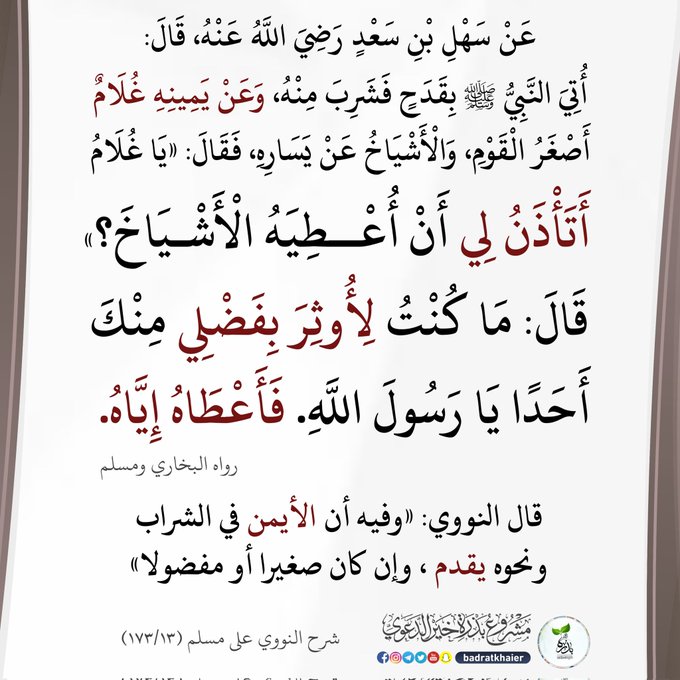 عَنْ سَهْلِ بْنِ سَعْدٍ رَضِيَ اللَّهُ عَنْهُ، قَالَ:
أُتِيَ النَّبِيُّ ﷺ بِقَدَحٍ فَشَرِبَ مِنْهُ، وَعَنْ يَمِينِهِ غُلَامٌ
أَصْغَرُ الْقَوْمِ، وَالْأَشْيَاخُ عَنْ يَسَارِهِ، فَقَالَ: «يَا غُلَامُ
أَتَأْذَنُ لِي أَنْ أُعْـــطِيَهُ الْأَشْـيَاخَ؟»
قَالَ: مَا كُنْتُ لِأُوثِرَ بِفَضْلِي مِنْكَ
أَحَدًا يَا رَسُولَ اللَّهِ. فَأَعْطَاهُ إِيَّاهُ.
رواه البخاري ومسلم
قال النووي: «وفيه أن الأيمن في الشراب
ونحوه يقدم ، وإن كان صغيرا أو مفضولا»
مشروع بذرة خير الدعوي
شرح النووي على مسلم (١٧٣/١٣)
badratkhaier